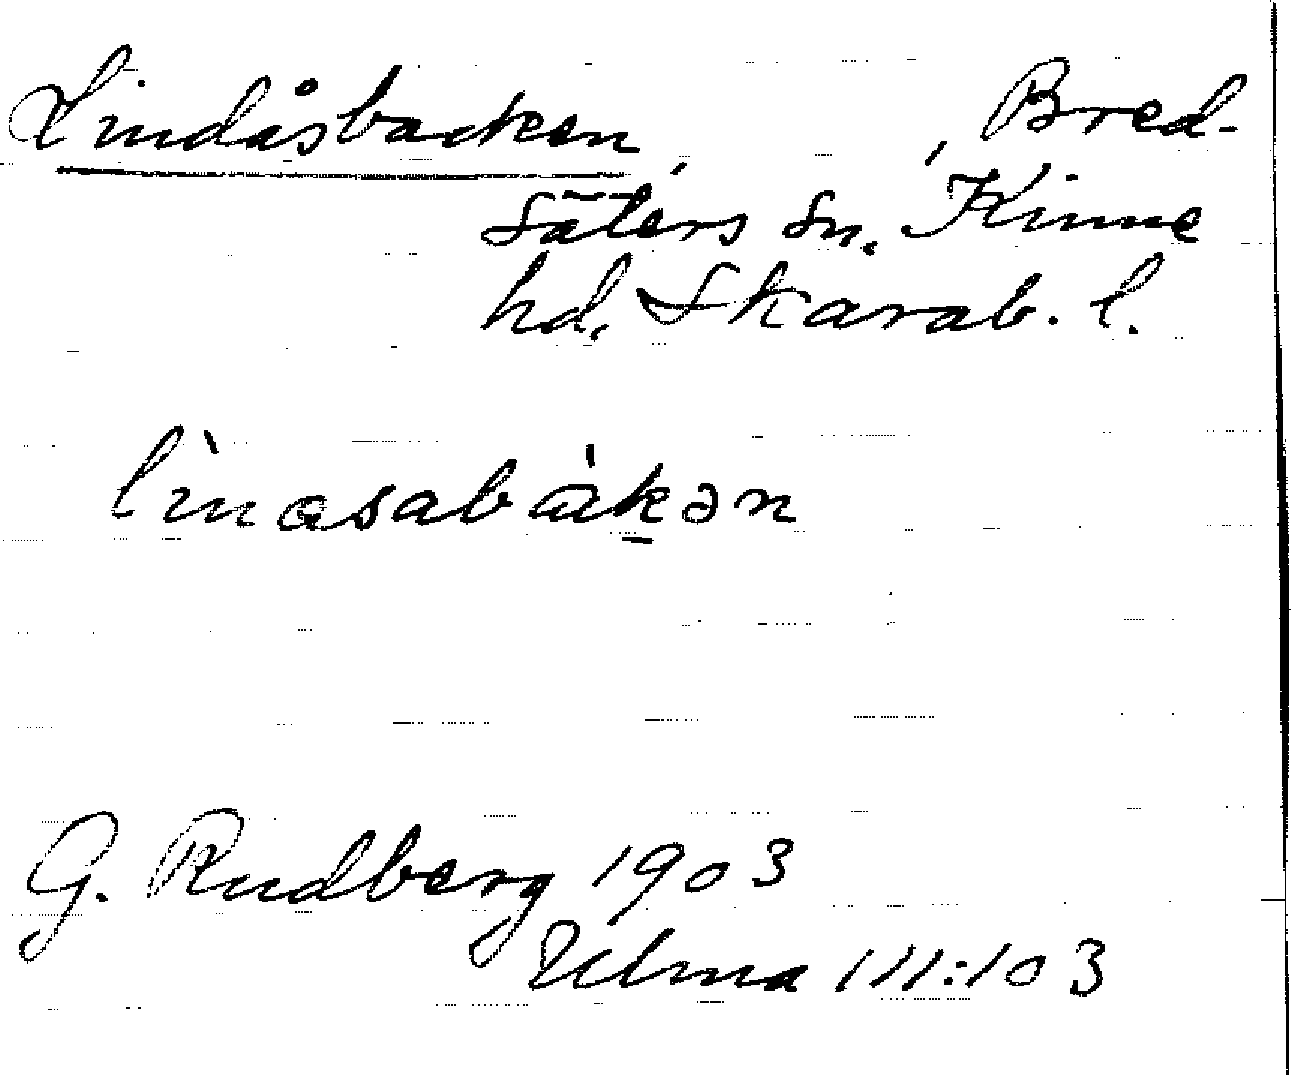 Lindåsbacken, , Bred-
säters sn. Kinne
hd. Skarab. l.
lìnasabákən
G. Rudberg 1903
Ulma 111:103